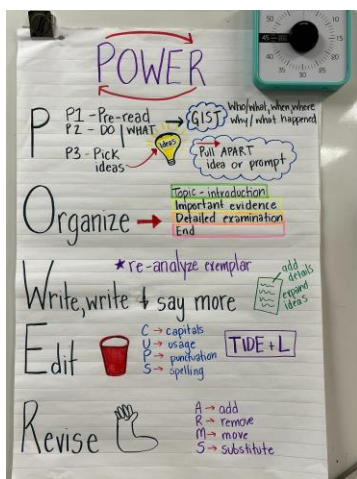 POWER
P
P1 - Pre-read → GIST
Who/what, when, where
why/what happened
P2 - DO | WHAT
Ideas
P3 - Pick
ideas
Pull APART
idea or prompt
Organize →
Topic - introduction
Important evidence
Detailed examination
End
★re-analyze exemplar
Write, write & say more
add
details
expand
ideas
Edit
C → capitals
U → usage
P → punctuation
S → spelling
TIDE + L
Revise
A → add
R → remove
M → move
S → substitute